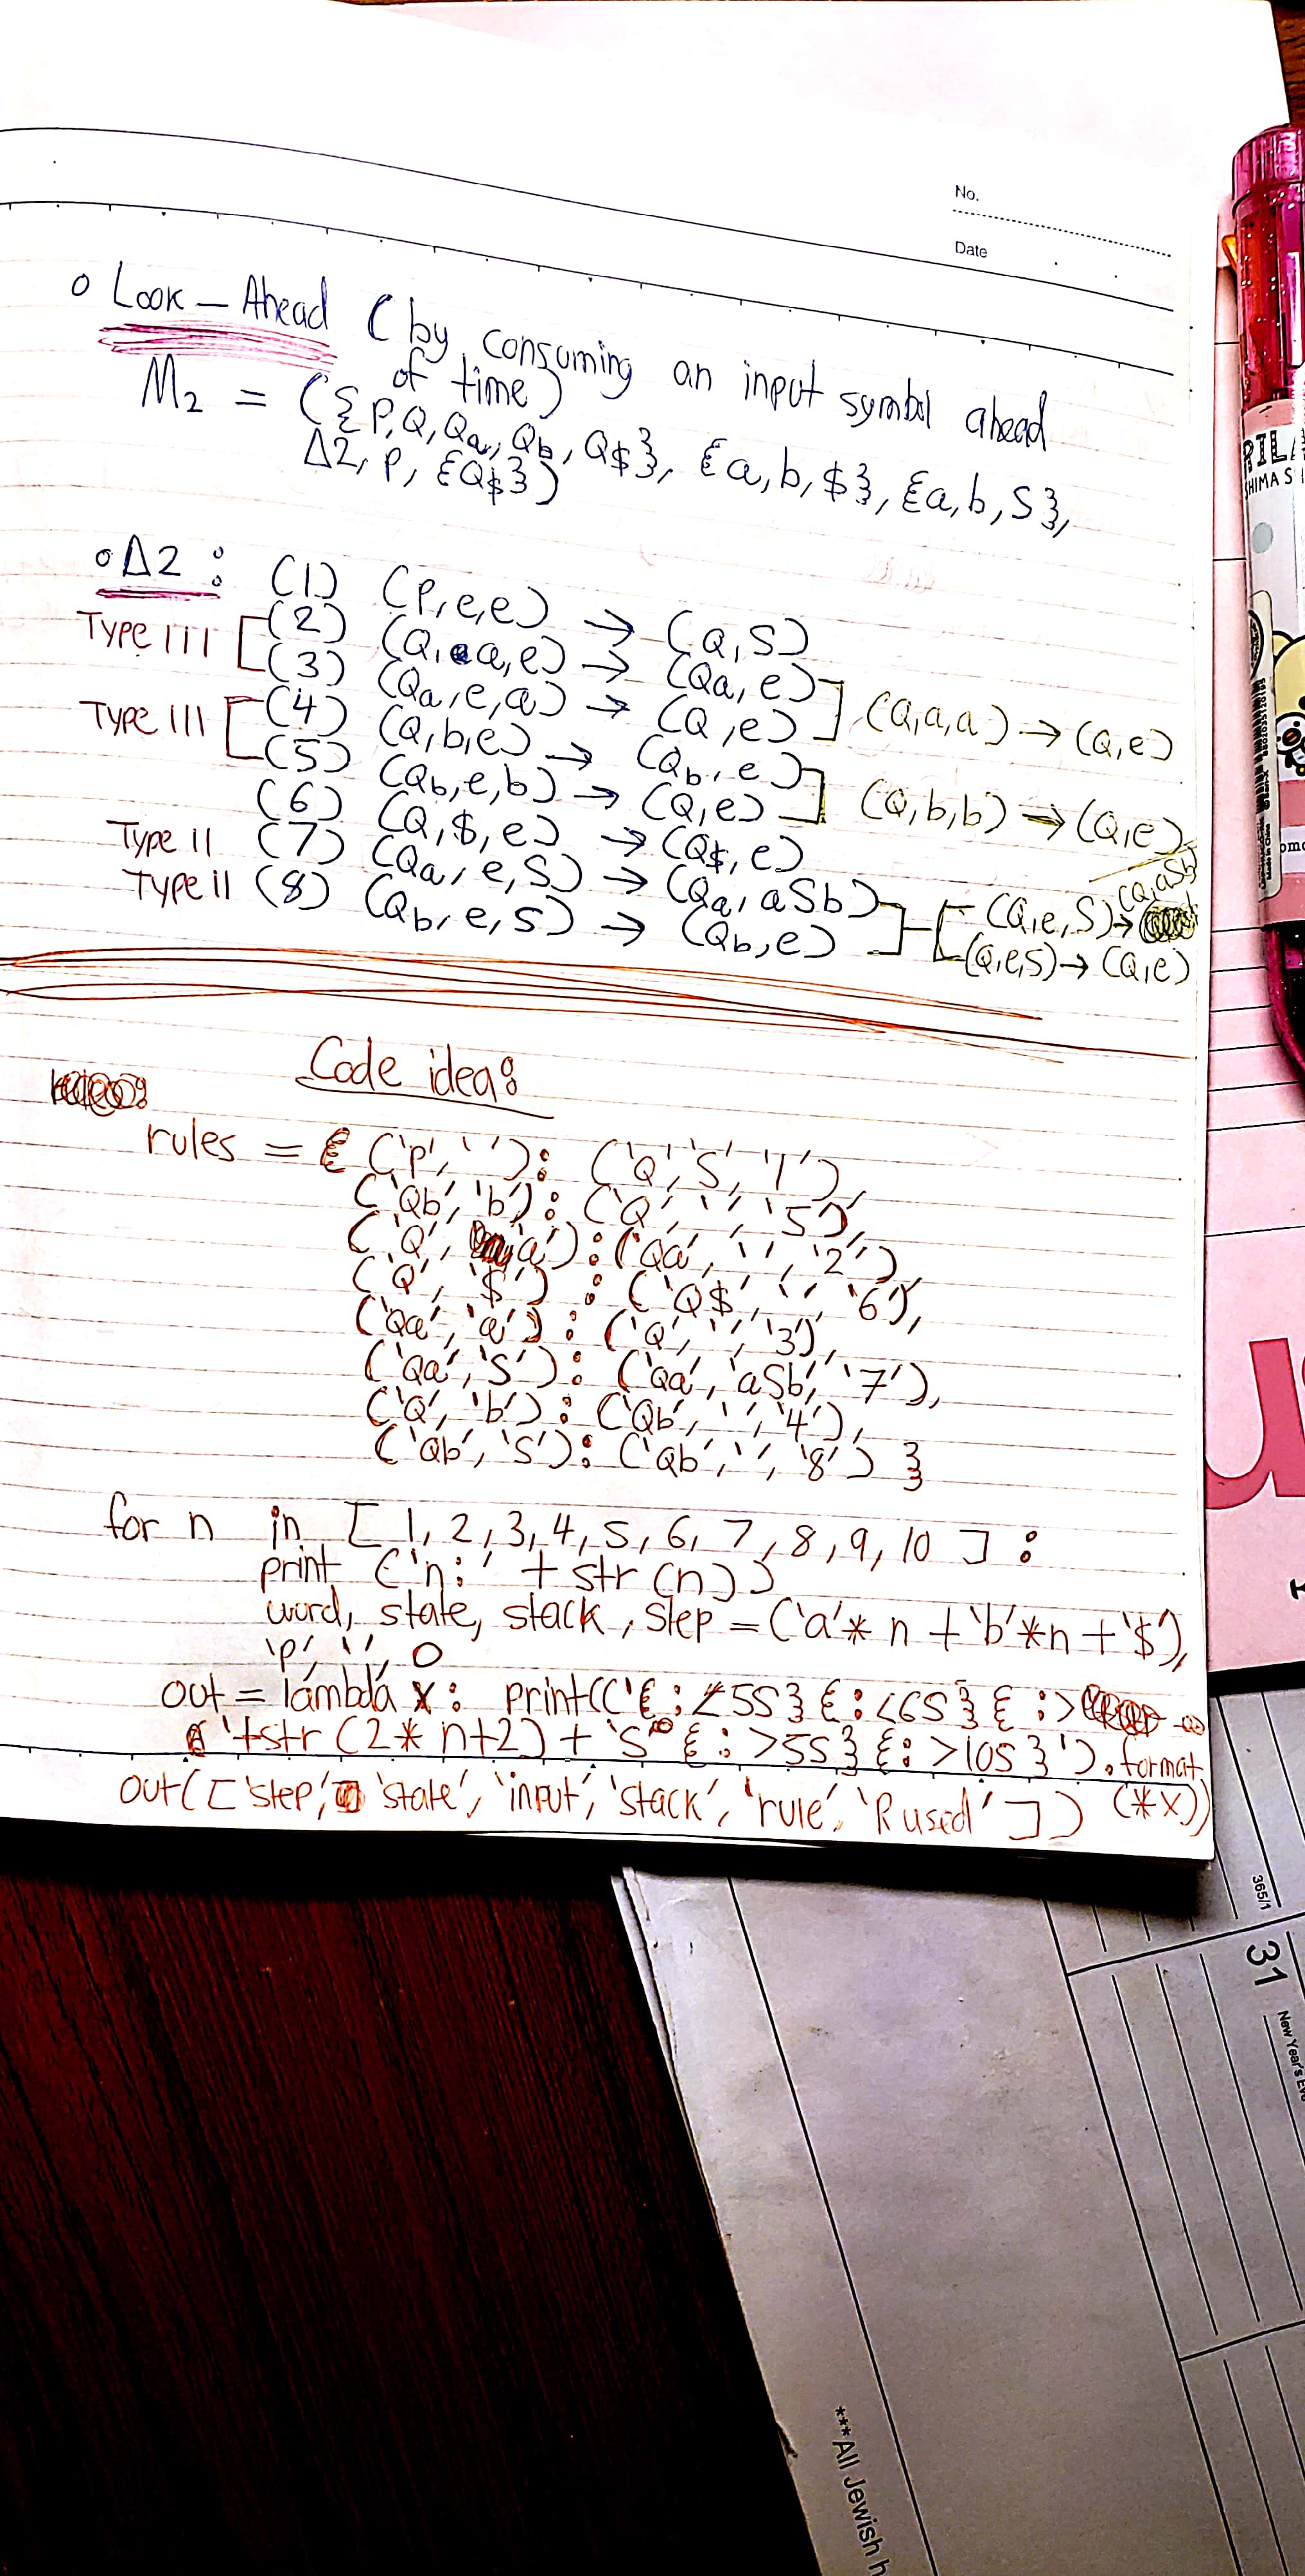 No.
Date
o Look-Ahead (by consuming an input symbol ahead
of time)
M2 = ({P,Q,Qa,Qb,Q$}, {a,b,$}, {a,b,S},
Δ2, P, {Q$})
o Δ2 : (1) (P,e,e) → (Q,S)
Type III (2) (Q,a,e) → (Qa,e)
(3) (Qa,e,a) → (Q,e) (Q,a,a) → (Q,e)
Type III (4) (Q,b,e) → (Qb,e)
(5) (Qb,e,b) → (Q,e) (Q,b,b) → (Q,e)
(6) (Q,$,e) → (Q$,e)
Type II (7) (Qa,e,S) → (Qa,aSb) (Q,e,S) → (Q,aSb)
Type II (8) (Qb,e,S) → (Qb,e) (Q,e,S) → (Q,e)
Code idea:
rules = { ('P',''): ('Q','S','1'),
('Qb','b'): ('Q','','5'),
('Q','a'): ('Qa','','2'),
('Q','$') : ('Q$','','6'),
('Qa','a') : ('Q','','3'),
('Qa','S'): ('Qa','aSb','7'),
('Q','b'): ('Qb','','4'),
('Qb','S'): ('Qb','','8') }
for n in [1,2,3,4,5,6,7,8,9,10] :
print ('n:' + str(n))
word, state, stack, step = ('a'*n+'b'*n+'$'),
'P','',0
out = lambda x: print(('{:<5S}{:<6S}{:>
'+str(2*n+2)+'S{:>5S}{:>10S}').format
(*x))
out(['step','state','input','stack','rule','R used'])
RIL
SHIMAS
365/1
31
New Year's Ev
***All Jewish h